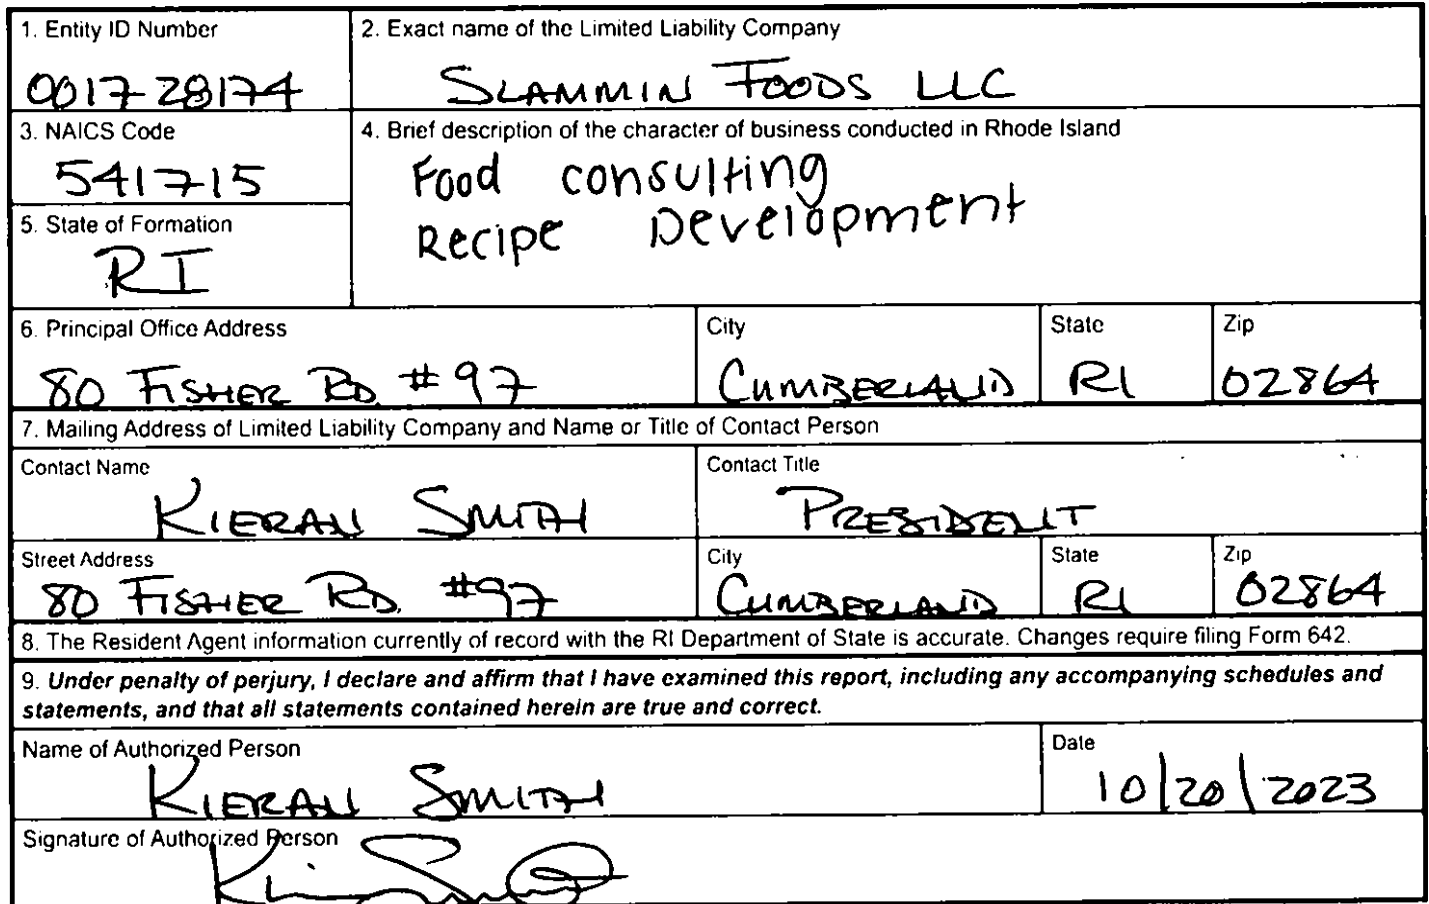 1. Entity ID Number
001728174
2. Exact name of the Limited Liability Company
SLAMMIN FOODS LLC
3. NAICS Code
541715
4. Brief description of the character of business conducted in Rhode Island
Food consulting
Recipe Development
5. State of Formation
RI
6. Principal Office Address
80 FISHER RD. #97
City
CUMBERLAND
State
RI
Zip
02864
7. Mailing Address of Limited Liability Company and Name or Title of Contact Person
Contact Name
KIERAN SMITH
Contact Title
PRESIDENT
Street Address
80 FISHER RD. #97
City
CUMBERLAND
State
RI
Zip
02864
8. The Resident Agent information currently of record with the RI Department of State is accurate. Changes require filing Form 642.
9. Under penalty of perjury, I declare and affirm that I have examined this report, including any accompanying schedules and
statements, and that all statements contained herein are true and correct.
Name of Authorized Person
KIERAN SMITH
Date
10/20/2023
Signature of Authorized Person